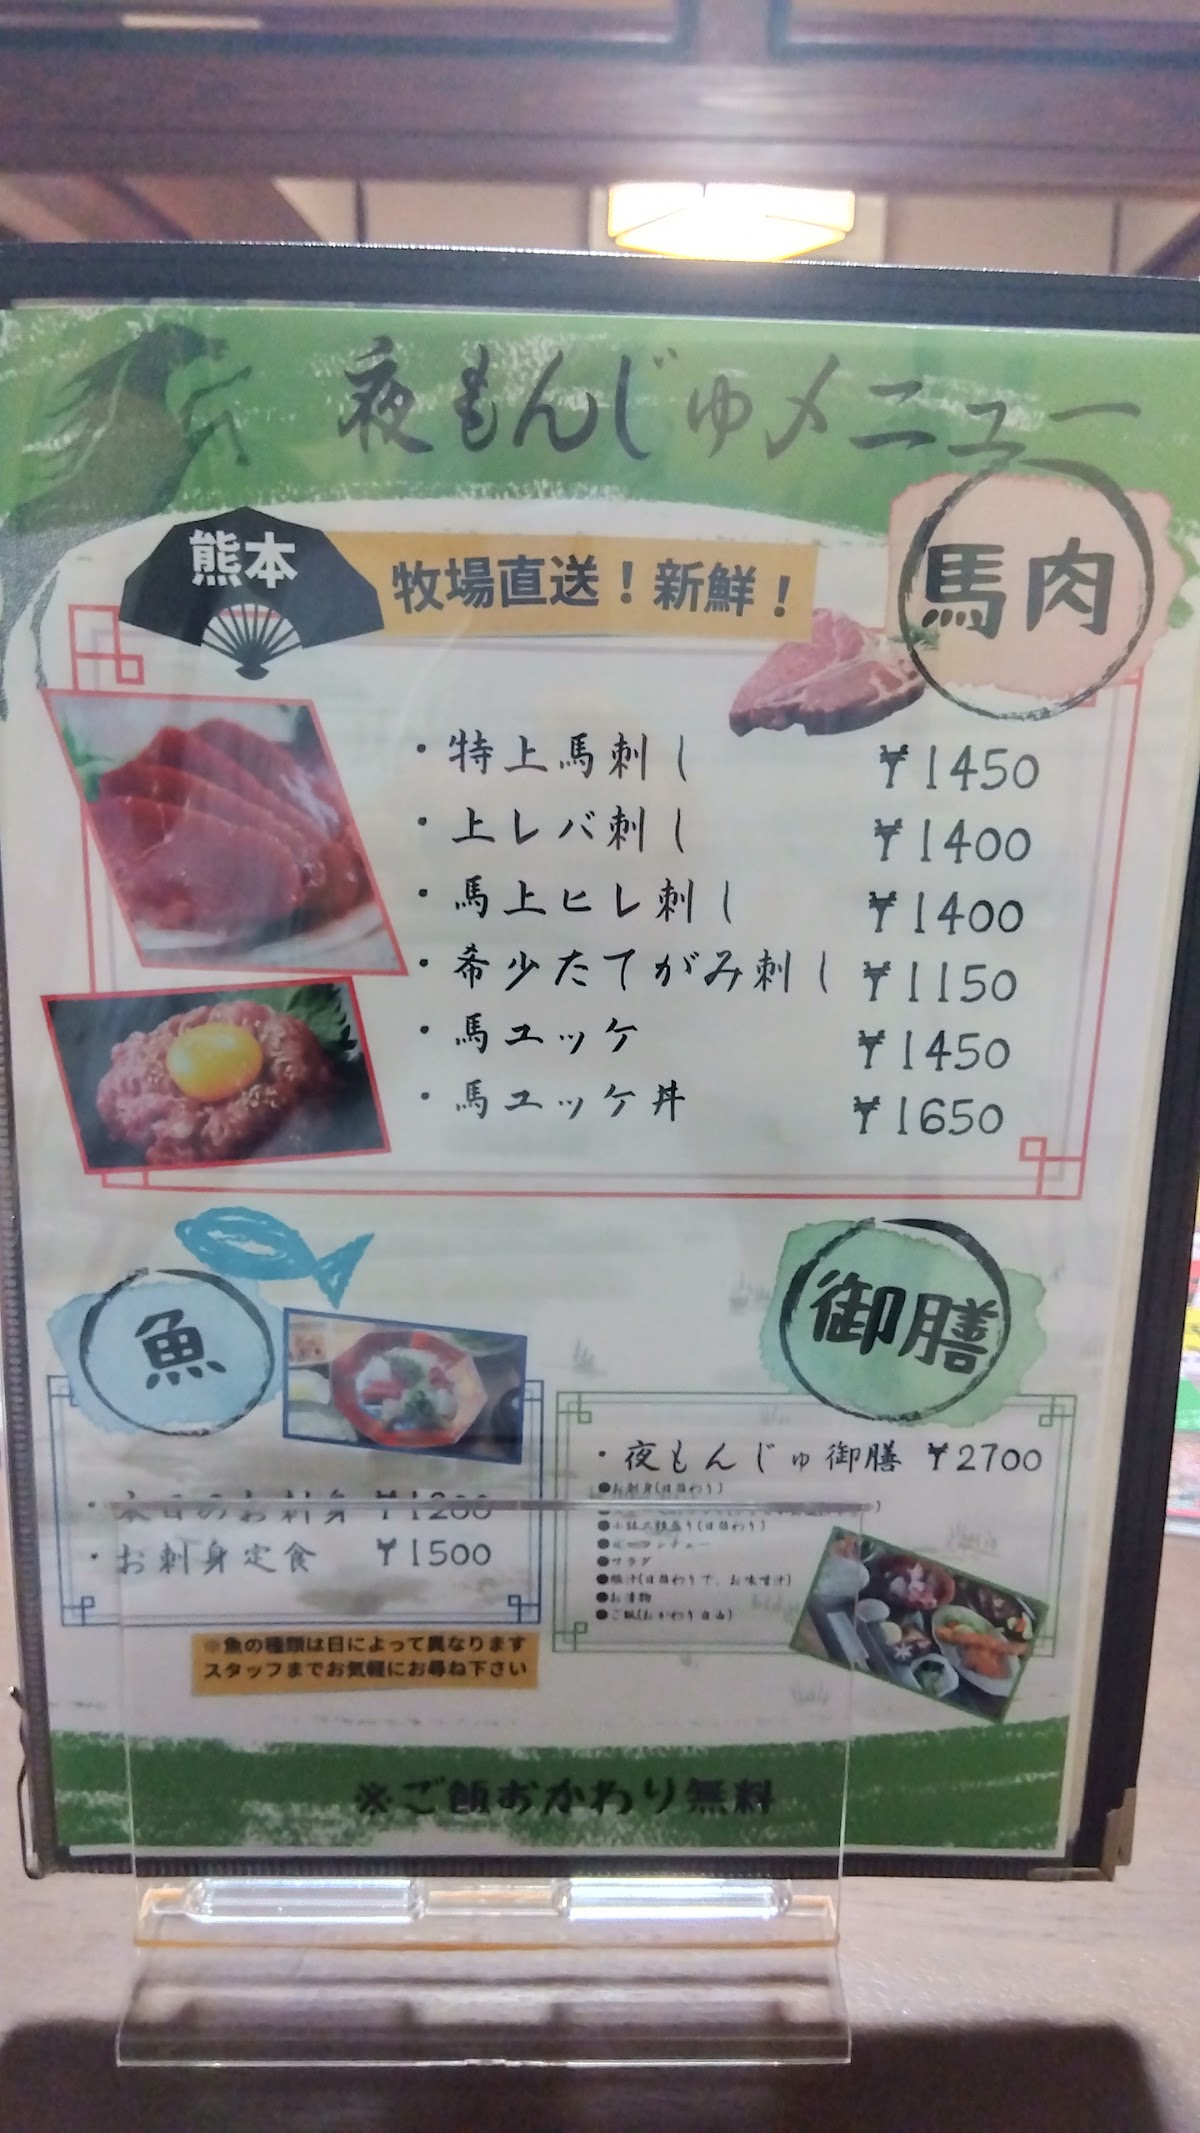 夜もんじゅメニュー
熊本
牧場直送！新鮮！
馬肉
・特上馬刺し ¥1450
・上レバ刺し ¥1400
・馬上ヒレ刺し ¥1400
・希少たてがみ刺し ¥1150
・馬ユッケ ¥1450
・馬ユッケ丼 ¥1650
魚
・本日のお刺身 ¥1200
・お刺身定食 ¥1500
※魚の種類は日によって異なります
スタッフまでお気軽にお尋ね下さい
御膳
・夜もんじゅ御膳 ¥2700
●お刺身(日替わり)
●小鉢三種盛り(日替わり)
●サラダ
●豚汁(日替わりで、お味噌汁)
●お漬物
●ご飯(おかわり自由)
※ご飯おかわり無料